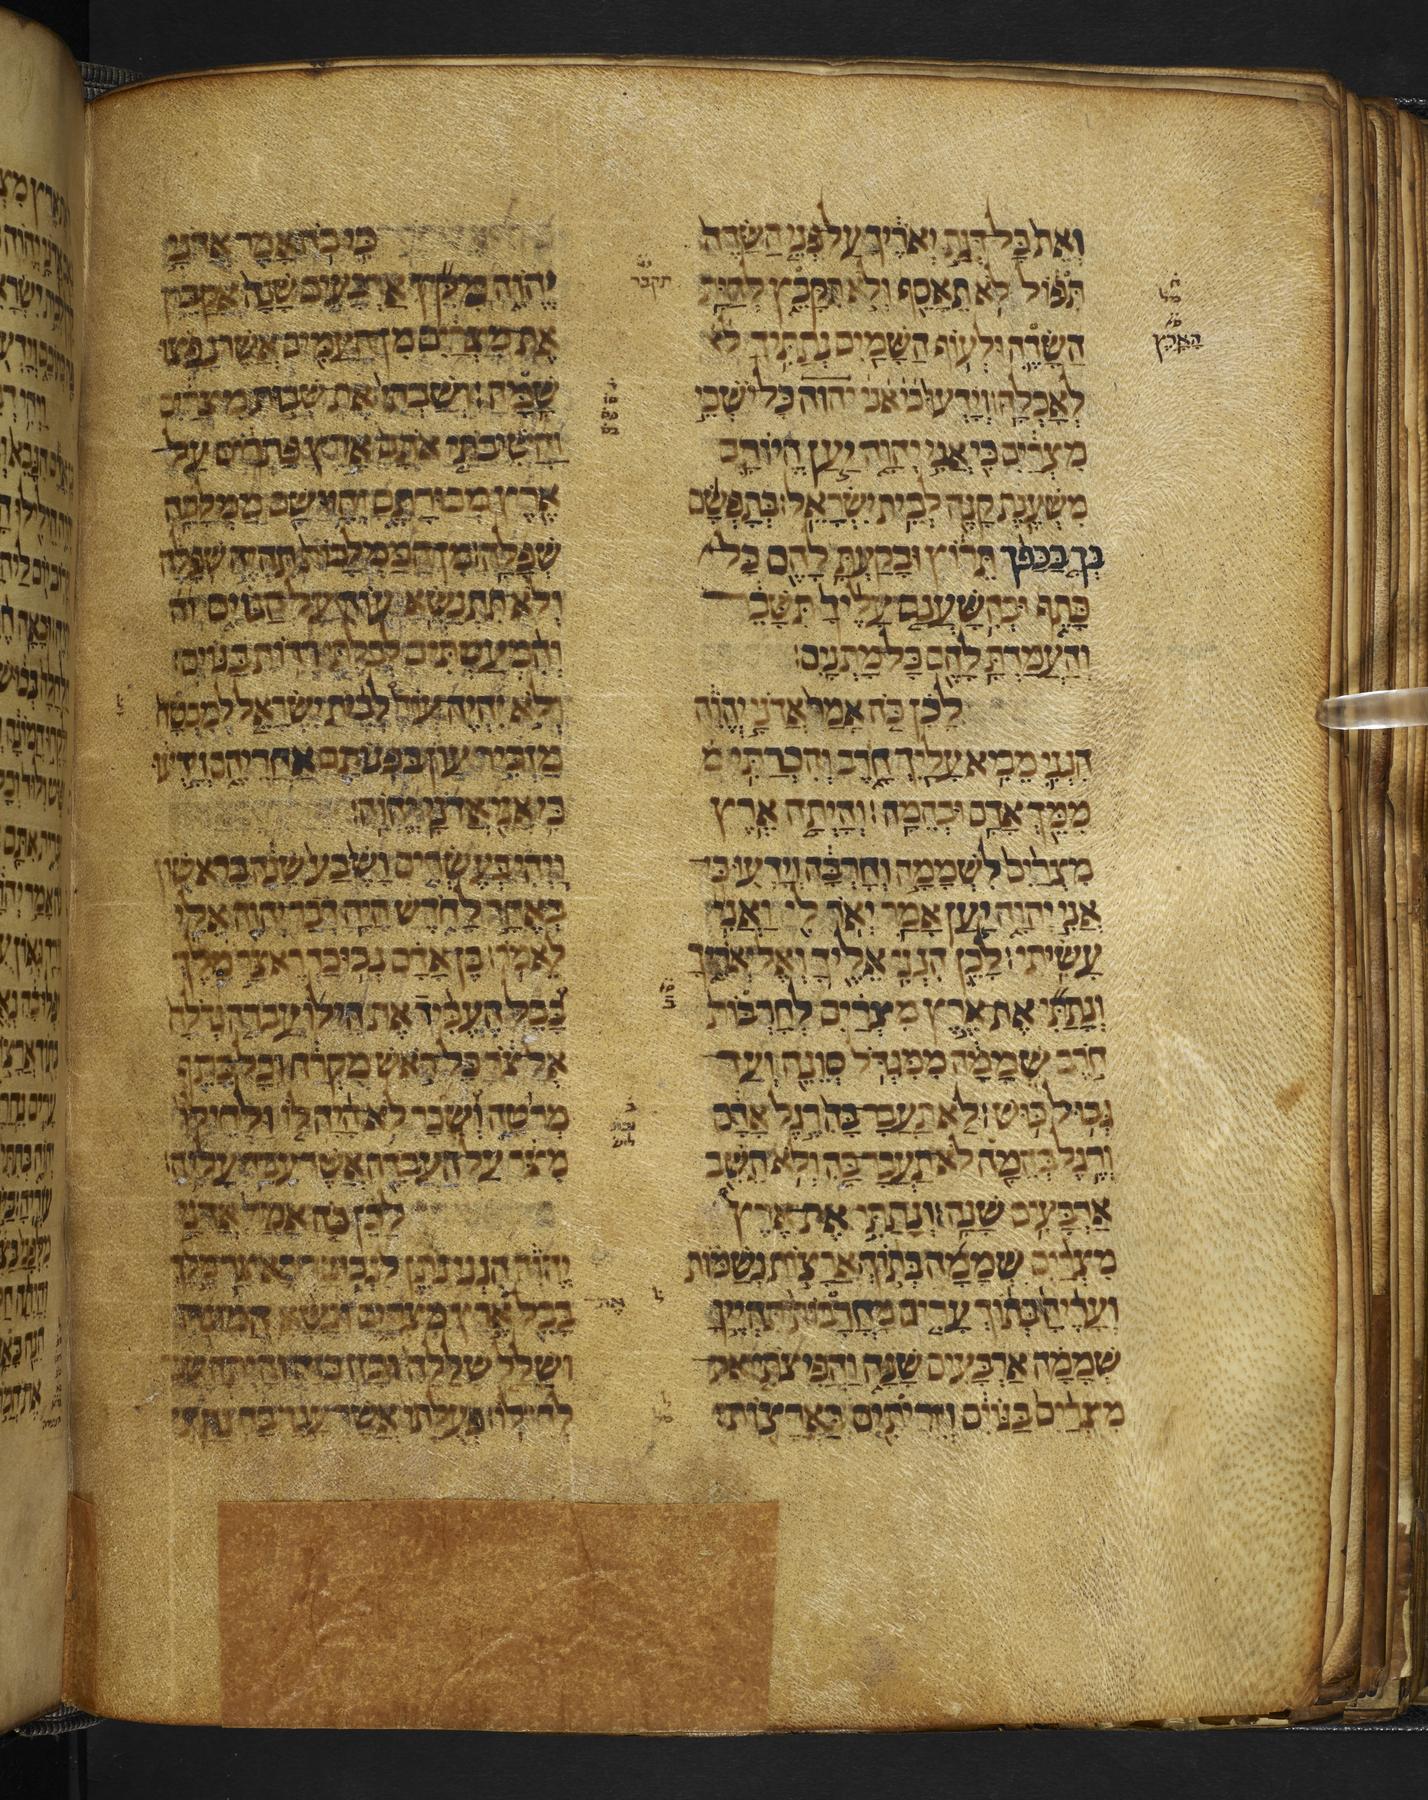 ואת כל דגת יאריך על פני השדה
תפול לא תאסף ולא תקבץ לחית
השדה ולעוף השמים נתתיך לא
לאכלה׃ וידעו כי אני יהוה כל ישבי
מצרים כי אני יהוה יען היותם
משענת קנה לבית ישראל׃ בתפשם
בך בכפך תרוץ ובקעת להם כל
כתף ובהשענם עליך תשבר
והעמדת להם כל מתנים׃
לכן כה אמר אדני יהוה
הנני מביא עליך חרב והכרתי מ
ממך אדם ובהמה׃ והיתה ארץ
מצרים לשממה וחרבה וידעו כי
אני יהוה יען אמר יאר לי ואני
עשיתי׃ לכן הנני אליך ואל יאריך
ונתתי את ארץ מצרים לחרבות
חרב שממה ממגדל סונה ועד
גבול כוש׃ לא תעבר בה רגל אדם
ורגל בהמה לא תעבר בה ולא תשב
ארבעים שנה׃ ונתתי את ארץ
מצרים שממה בתוך ארצות נשמות
ועריה בתוך ערים מחרבות תהיין
שממה ארבעים שנה והפיצתי את
מצרים בגוים וזריתים בארצות׃
כי כה אמר אדני
יהוה מקץ ארבעים שנה אקבץ
את מצרים מן העמים אשר נפצו
שמה׃ ושבתי את שבות מצרים
והשיבתי אתם ארץ פתרוס על
ארץ מכורתם והיו שם ממלכה
שפלה׃ מן הממלכות תהיה שפלה
ולא תתנשא עוד על הגוים
והמעטתים לבלתי רדות בגוים׃
ולא יהיה עוד לבית ישראל למבטח
מזכיר עון בפנתם אחריהם וידעו
כי אני אדני יהוה׃
ויהי בעשרים ושבע שנה בראשון
באחד לחדש היה דבר יהוה אלי
לאמר׃ בן אדם נבוכדראצר מלך
בבל העביד את חילו עבדה גדלה
אל צר כל ראש מקרח וכל כתף
מרטה ושכר לא היה לו ולחילו
מצר על העבדה אשר עבד עליה׃
לכן כה אמר אדני
יהוה הנני נתן לנבוכדראצר מלך
בבל ארץ מצרים ונשא המנה
ושלל שללה ובזז בזה והיתה שכר
לחילו׃ פעלתו אשר עבד בה נתתי